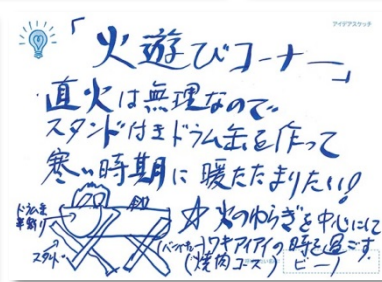 アイデアスケッチ
「火遊びコーナー」
直火は無理なので
スタンド付きドラム缶を作って
寒い時期に暖たまりたい!
ドラム缶
半割り
スタンド
☆火のゆらぎを中心にして
ワキアイアイの時を過ごす。
(焼肉コース)